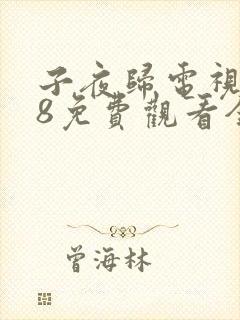 子夜歸電視
8免費觀看全
曾海林